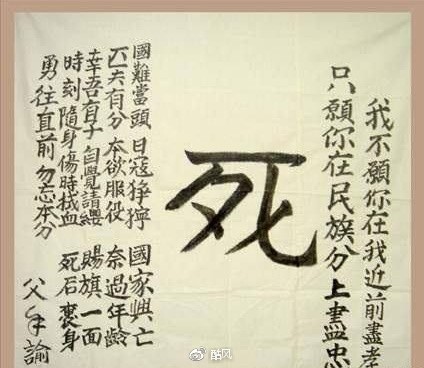 我不願你在我近前盡孝
只願你在民族分上盡忠
死
國難當頭 日寇猙獰 國家興亡
匹夫有分 本欲服役 奈過年齡
幸吾有子 自覺請纓 賜旗一面
時刻隨身 傷時拭血 死后裹身
勇往直前 勿忘本分
父手諭
酷风